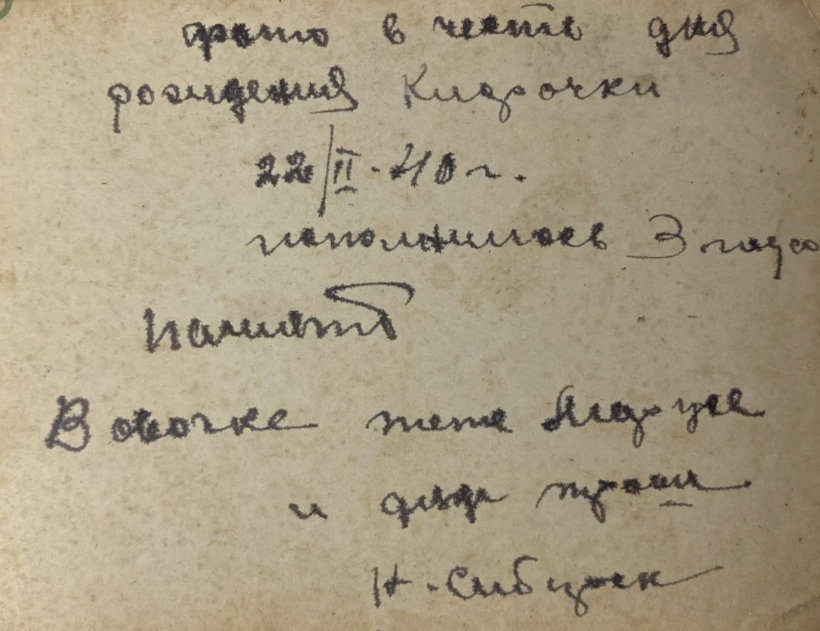 фото в честь дня
рождения Кидрочки
22/II-40 г.
исполнилось 3 года
Память
Вовочке тете Марусе
и дяде
Н-Сибирск